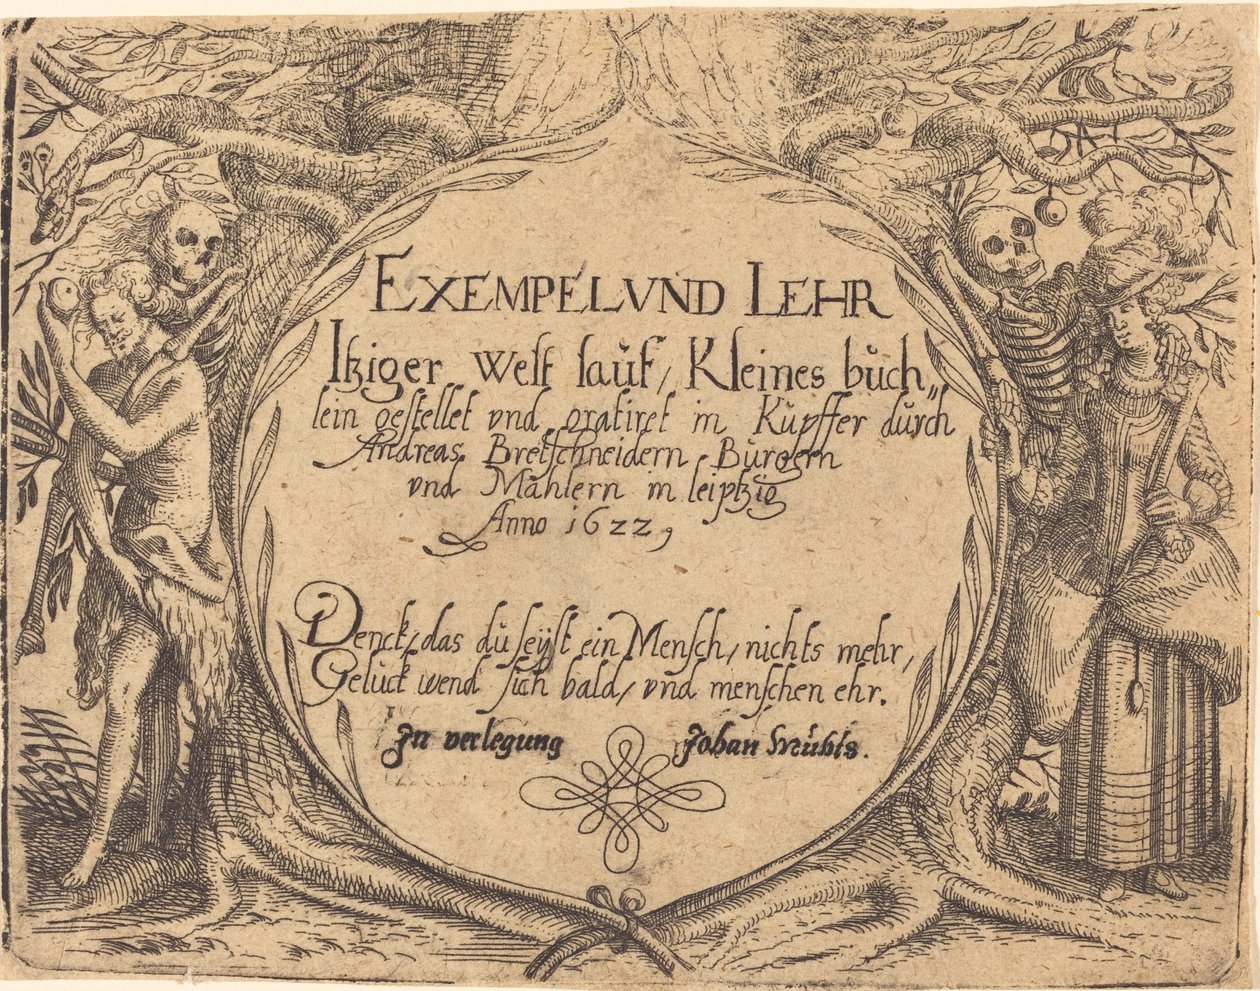 EXEMPEL VND LEHR
Itziger welt lauf, Kleines büch„
lein gestellet vnd gratiret in Kupffer dürch
Andreas Bretschneidern Bürgern
vnd Mahlern in leiptzig
Anno 1622,
Denck, das dü seyst ein Mensch, nichts mehr,
Gelück wend sich bald, vnd menschen ehr.
In verlegung Johan